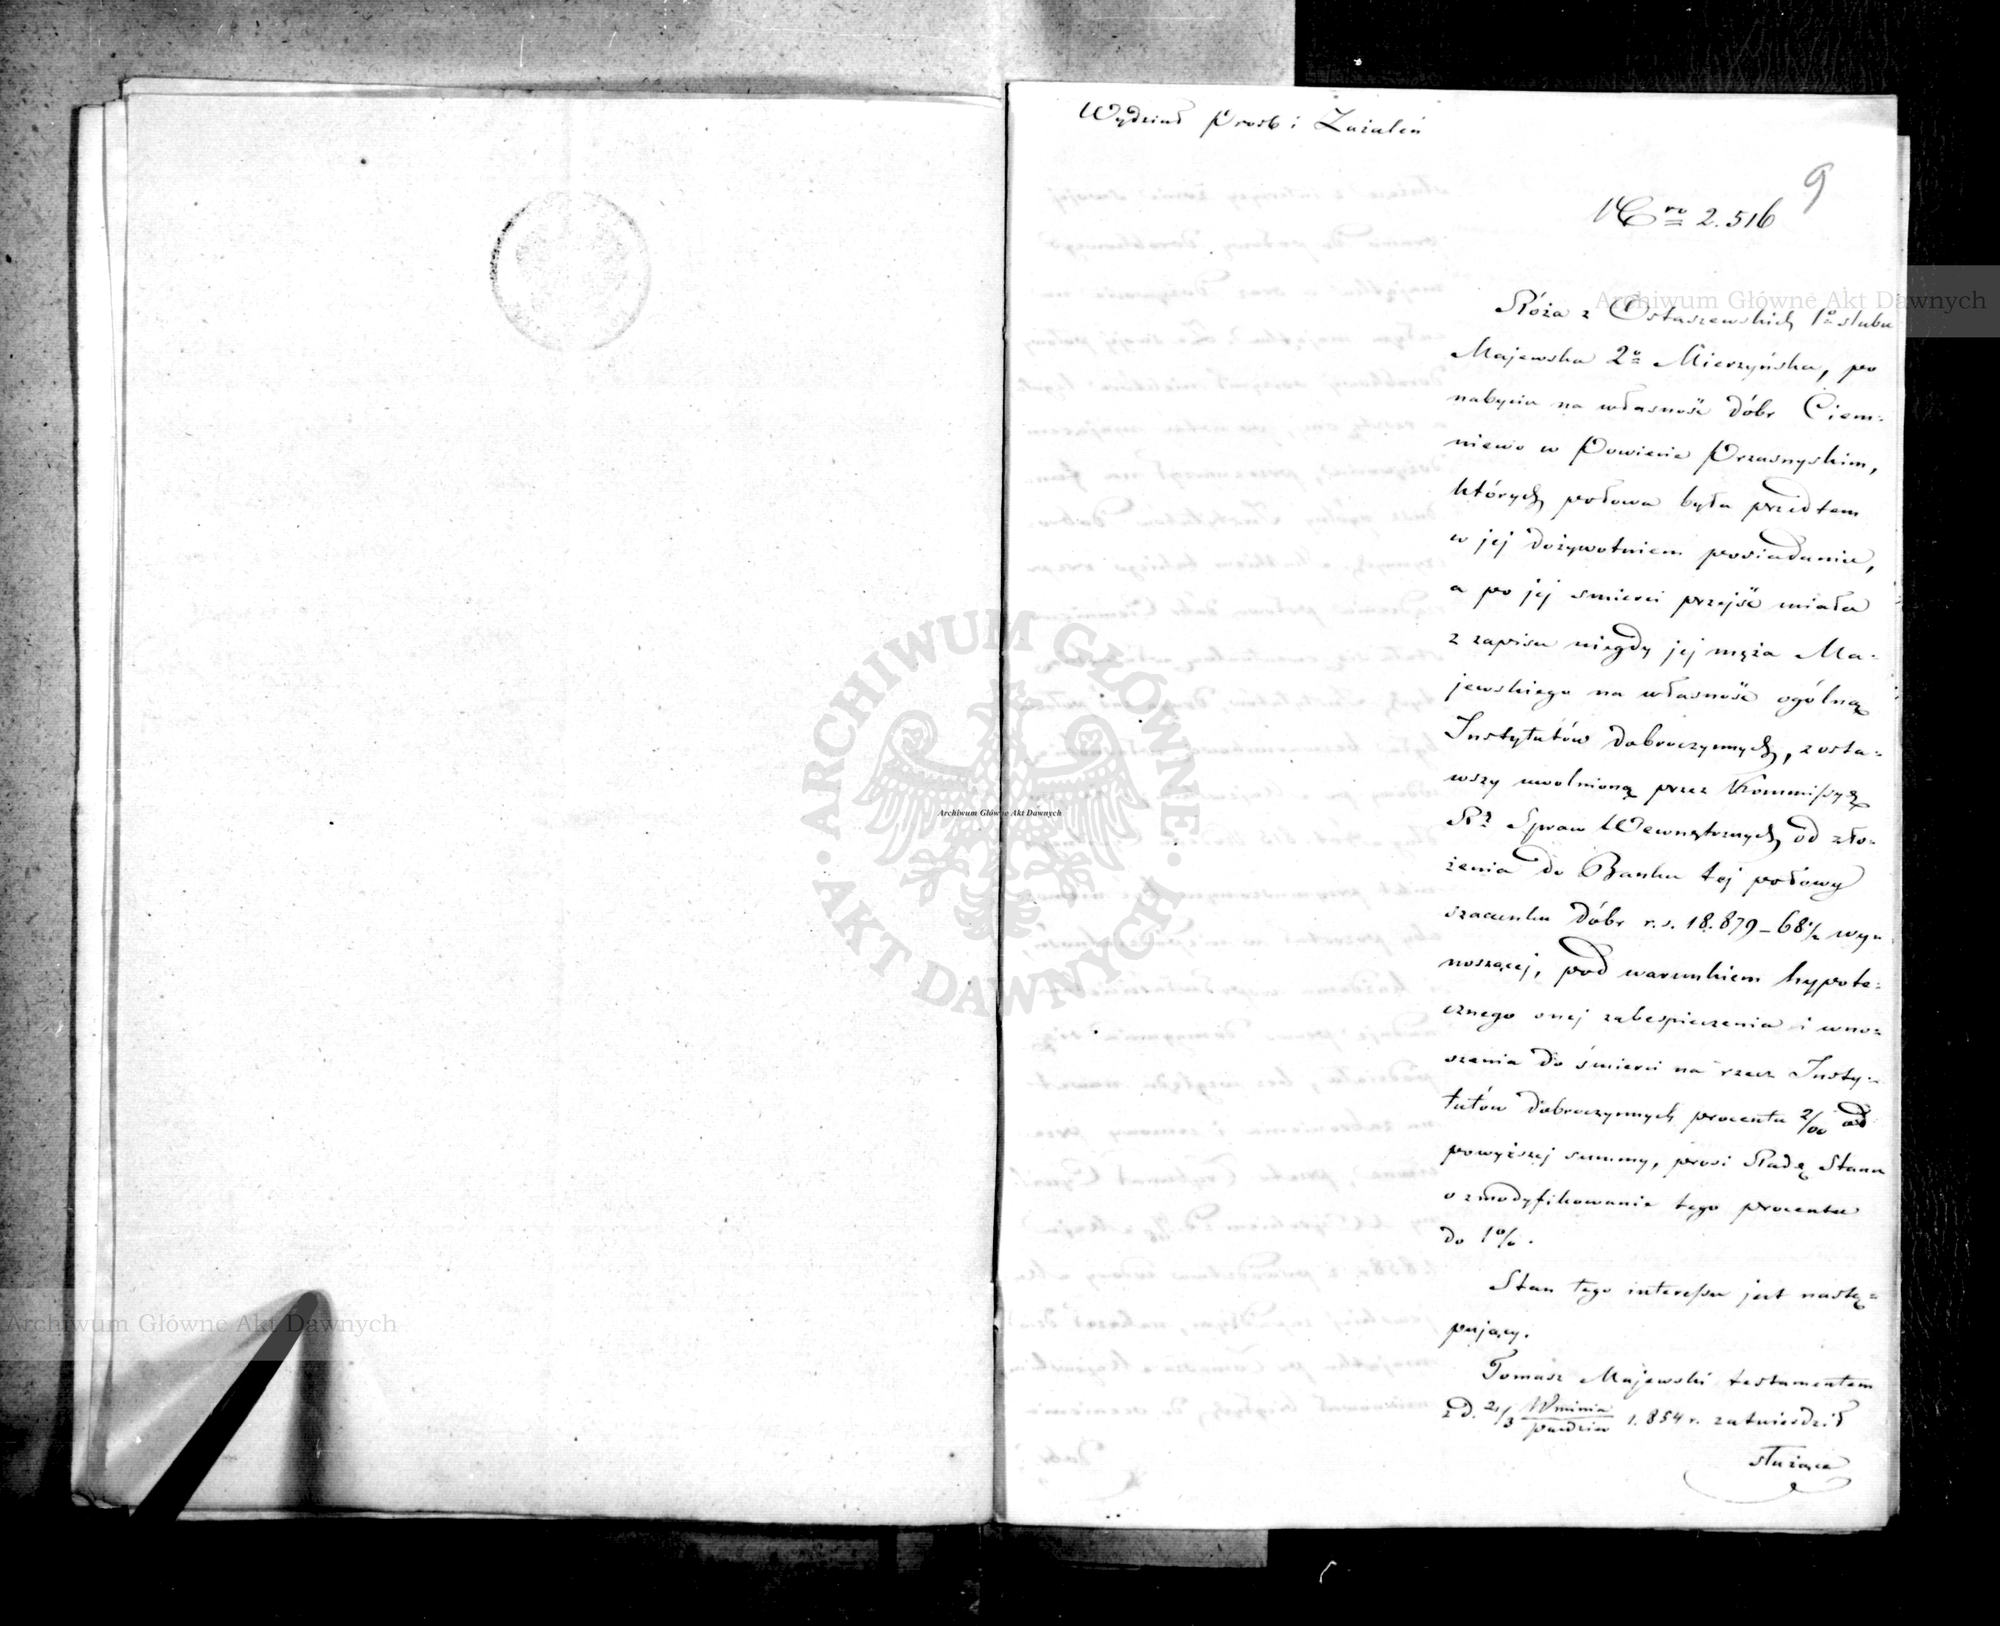 Wydział Prosb i Zażaleń
9
Nro 2.516
Róża z Ostaszewskich 1o slubu
Majewska 2o Mierzyńska, po
nabyciu na własność dóbr Ciem-
niewo w Powiecie Przasnyskim,
których połowa była przedtem
w jej dożywotniem posiadaniu,
a po jej smierci przejść miała
z zapisu niegdy jej męża Ma-
jewskiego na własność ogólną
Instytutów dobroczynnych, zosta-
wszy uwolnioną przez Kommissyę
Rą Spraw Wewnętrznych od zło-
żenia do Banku tej połowy
szacunku dóbr r.s. 18.879-68½ wy-
noszącej, pod warunkiem hypote-
cznego onej zabespieczenia i wno-
szenia do śmierci na rzecz Insty-
tutów dobroczynnych procentu 2/00 od
powyższej summy, prosi Radę Stanu
o zmodyfikowanie tego procentu
do 1%.
Stan tego interessu jest nastę-
pujący.
Tomasz Majewski testamentem
z d. 21/3 Wrznia/Pazdzier 1.854 r. zatwierdził
służące
Archiwum Główne Akt Dawnych
Archiwum Główne Akt Dawnych
Archiwum Główne Akt Dawnych
ARCHIWUM GŁÓWNE AKT DAWNYCH